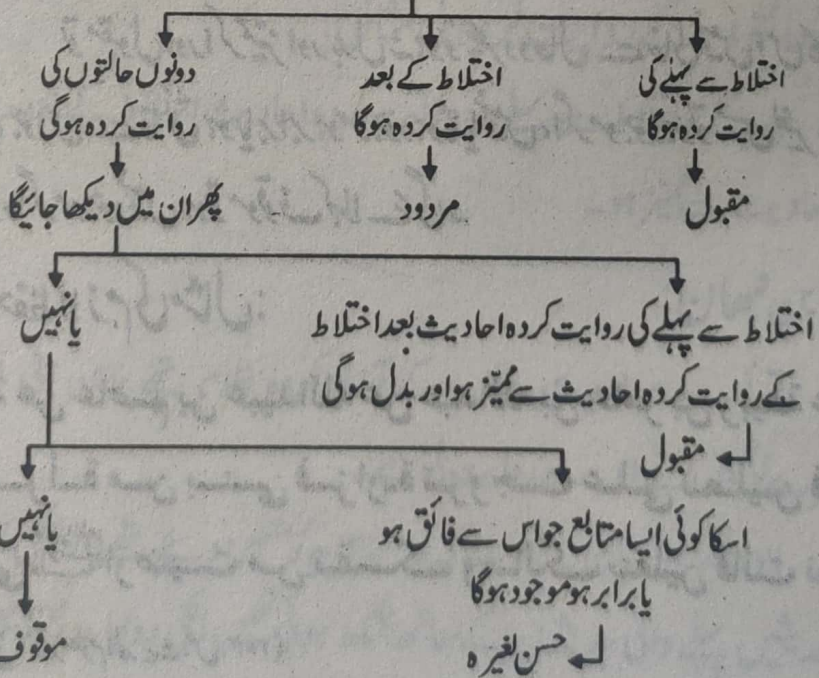 اختلاط سے پہلے کی
روایت کردہ ہوگا
مقبول
اختلاط کے بعد
روایت کردہ ہوگا
مردود
دونوں حالتوں کی
روایت کردہ ہوگی
پھر ان میں دیکھا جائیگا
اختلاط سے پہلے کی روایت کردہ احادیث بعد اختلاط
کے روایت کردہ احادیث سے ممیّز ہو اور بدل ہوگی
مقبول
یا نہیں
اسکا کوئی ایسا متابع جو اس سے فائق ہو
یا برابر ہو موجود ہوگا
حسن لغیرہ
یا نہیں
موقوف